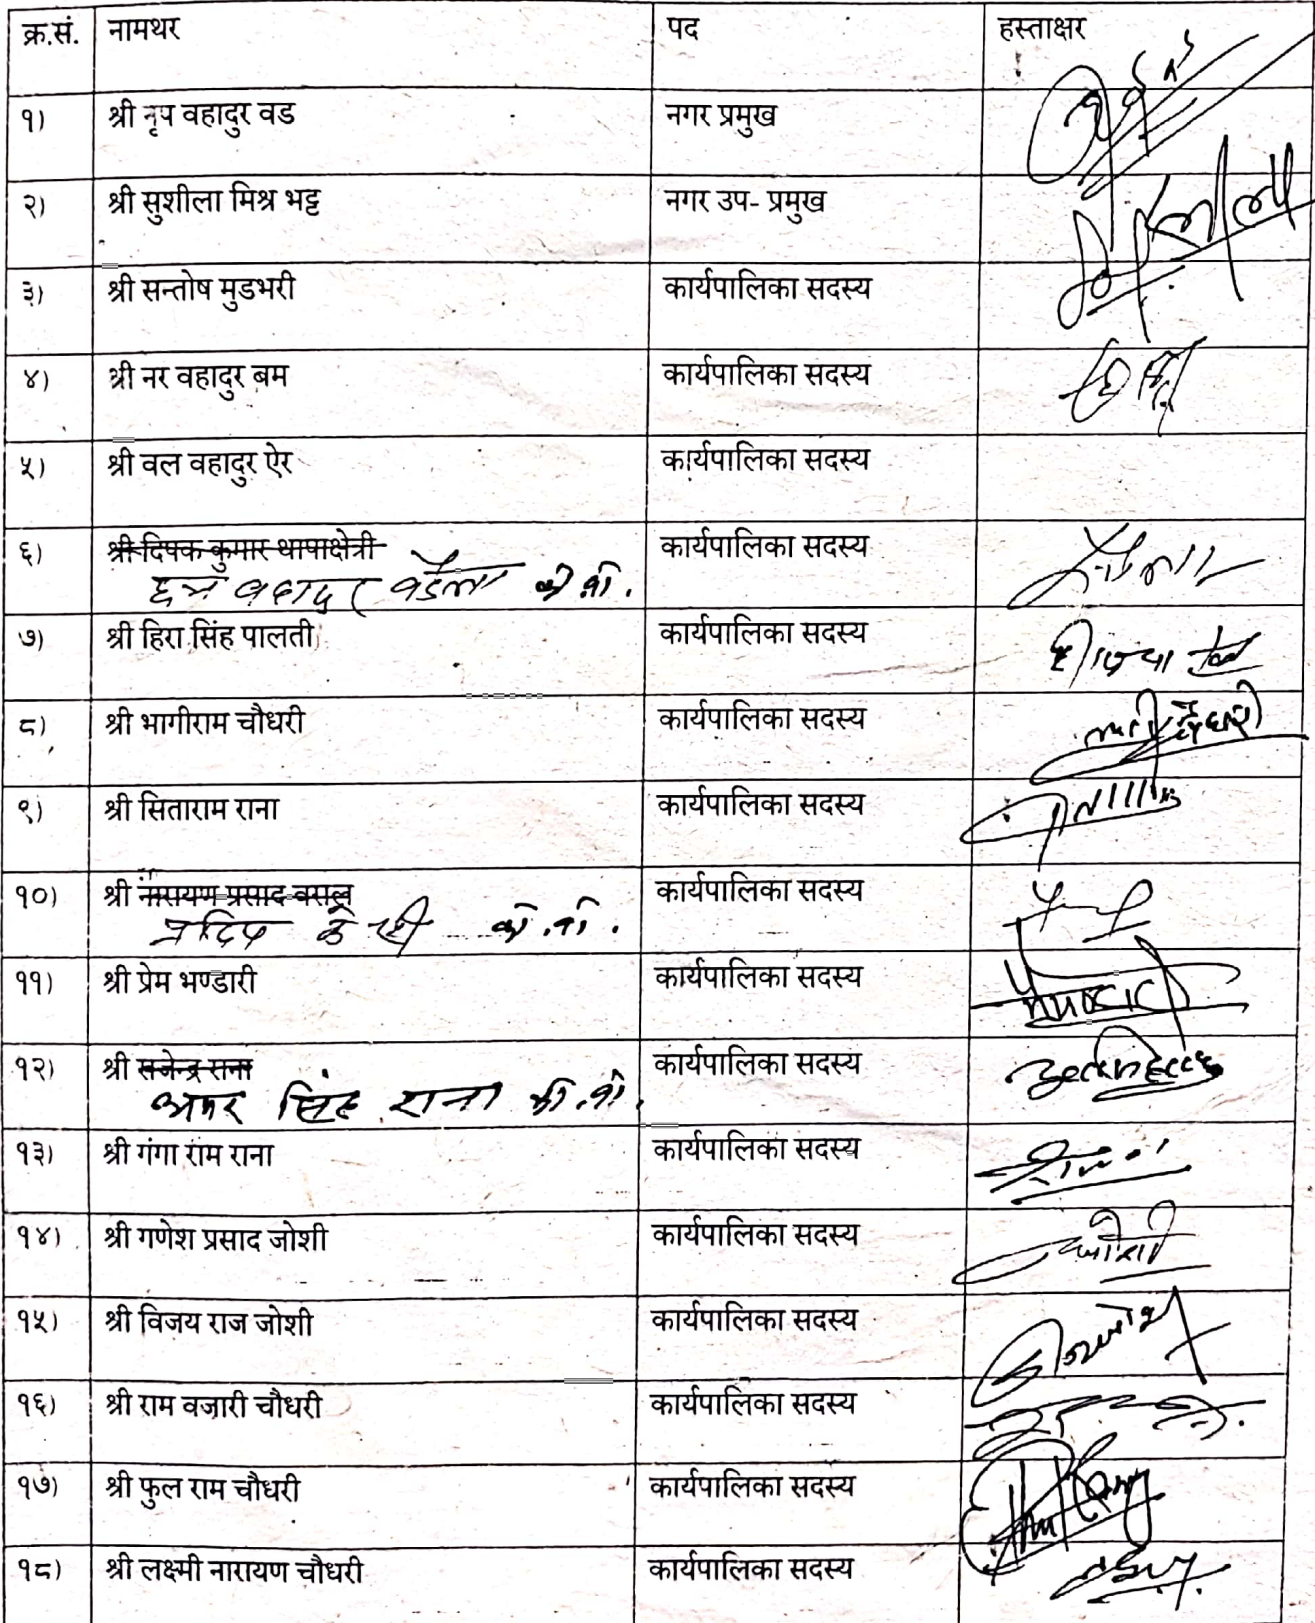 क्र.सं. नामथर पद हस्ताक्षर
१) श्री नृप वहादुर वड नगर प्रमुख
२) श्री सुशीला मिश्र भट्ट नगर उप- प्रमुख
३) श्री सन्तोष मुडभरी कार्यपालिका सदस्य
४) श्री नर वहादुर बम कार्यपालिका सदस्य
५) श्री वल वहादुर ऐर कार्यपालिका सदस्य
६) श्री दिपक कुमार थापाक्षेत्री कार्यपालिका सदस्य
वहादुर का.वा.
७) श्री हिरा सिंह पालती कार्यपालिका सदस्य
८) श्री भागीराम चौधरी कार्यपालिका सदस्य
९) श्री सिताराम राना कार्यपालिका सदस्य
१०) श्री नारायण प्रसाद कार्यपालिका सदस्य
प्रदिप के सी का.वा.
११) श्री प्रेम भण्डारी कार्यपालिका सदस्य
१२) श्री राना कार्यपालिका सदस्य
अमर सिंह राना का.वा.
१३) श्री गंगा राम राना कार्यपालिका सदस्य
१४) श्री गणेश प्रसाद जोशी कार्यपालिका सदस्य
१५) श्री विजय राज जोशी कार्यपालिका सदस्य
१६) श्री राम वजारी चौधरी कार्यपालिका सदस्य
१७) श्री फुल राम चौधरी कार्यपालिका सदस्य
१८) श्री लक्ष्मी नारायण चौधरी कार्यपालिका सदस्य